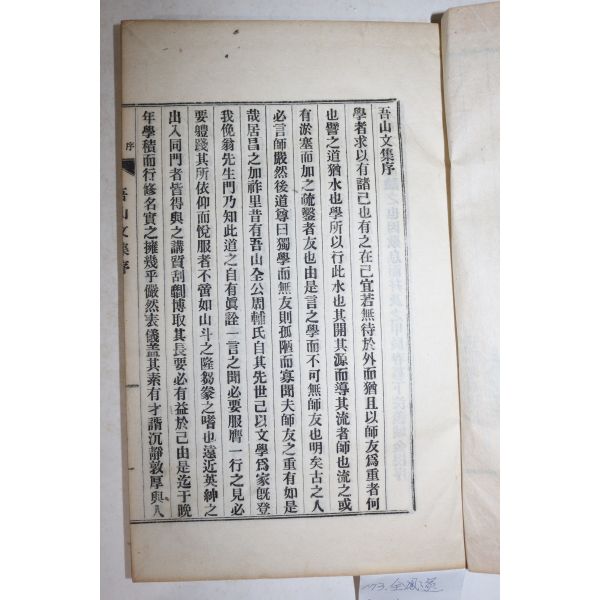 吾山文集序
學者求以有諸己也有之在己宜若無待於外而猶且以師友爲重者何
也譬之道猶水也學所以行此水也其開其源而導其流者師也流之或
有淤塞而加之疏鑿者友也由是言之學而不可無師友也明矣古之人
必言師嚴然後道尊曰獨學而無友則孤陋而寡聞夫師友之重有如是
哉居昌之加祚里昔有吾山全公周輔氏自其先世己以文學爲家旣登
我俛翁先生門乃知此道之自有眞詮一言之聞必要服膺一行之見必
要軆踐其所依仰而悅服者不啻如山斗之隆芻豢之嗜也遠近英紳之
出入同門者皆得與之講質刮劘博取其長要必有益於己由是迄于晩
年學積而行修名實之擁幾乎儼然表儀蓋其素有才諝沉靜敦厚與人
序
吾山文集序
173.